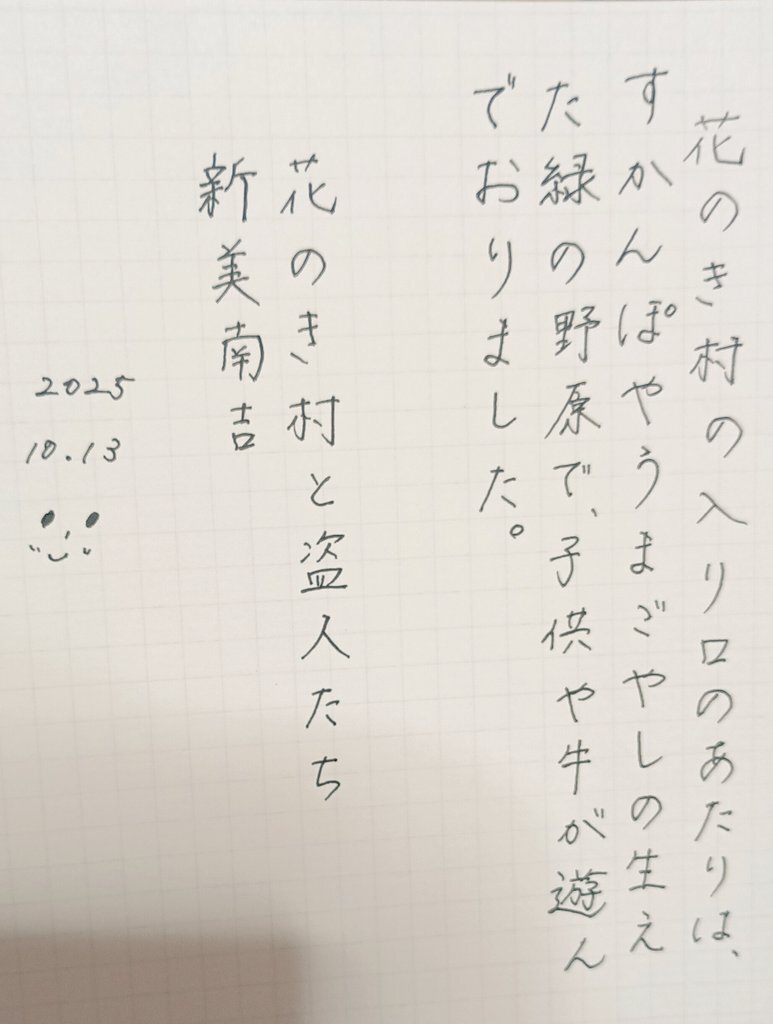 花のき村の入り口のあたりは、
すかんぽやうまごやしの生え
た緑の野原で、子供や牛が遊ん
でおりました。
花のき村と盗人たち
新美南吉
2025
10.13